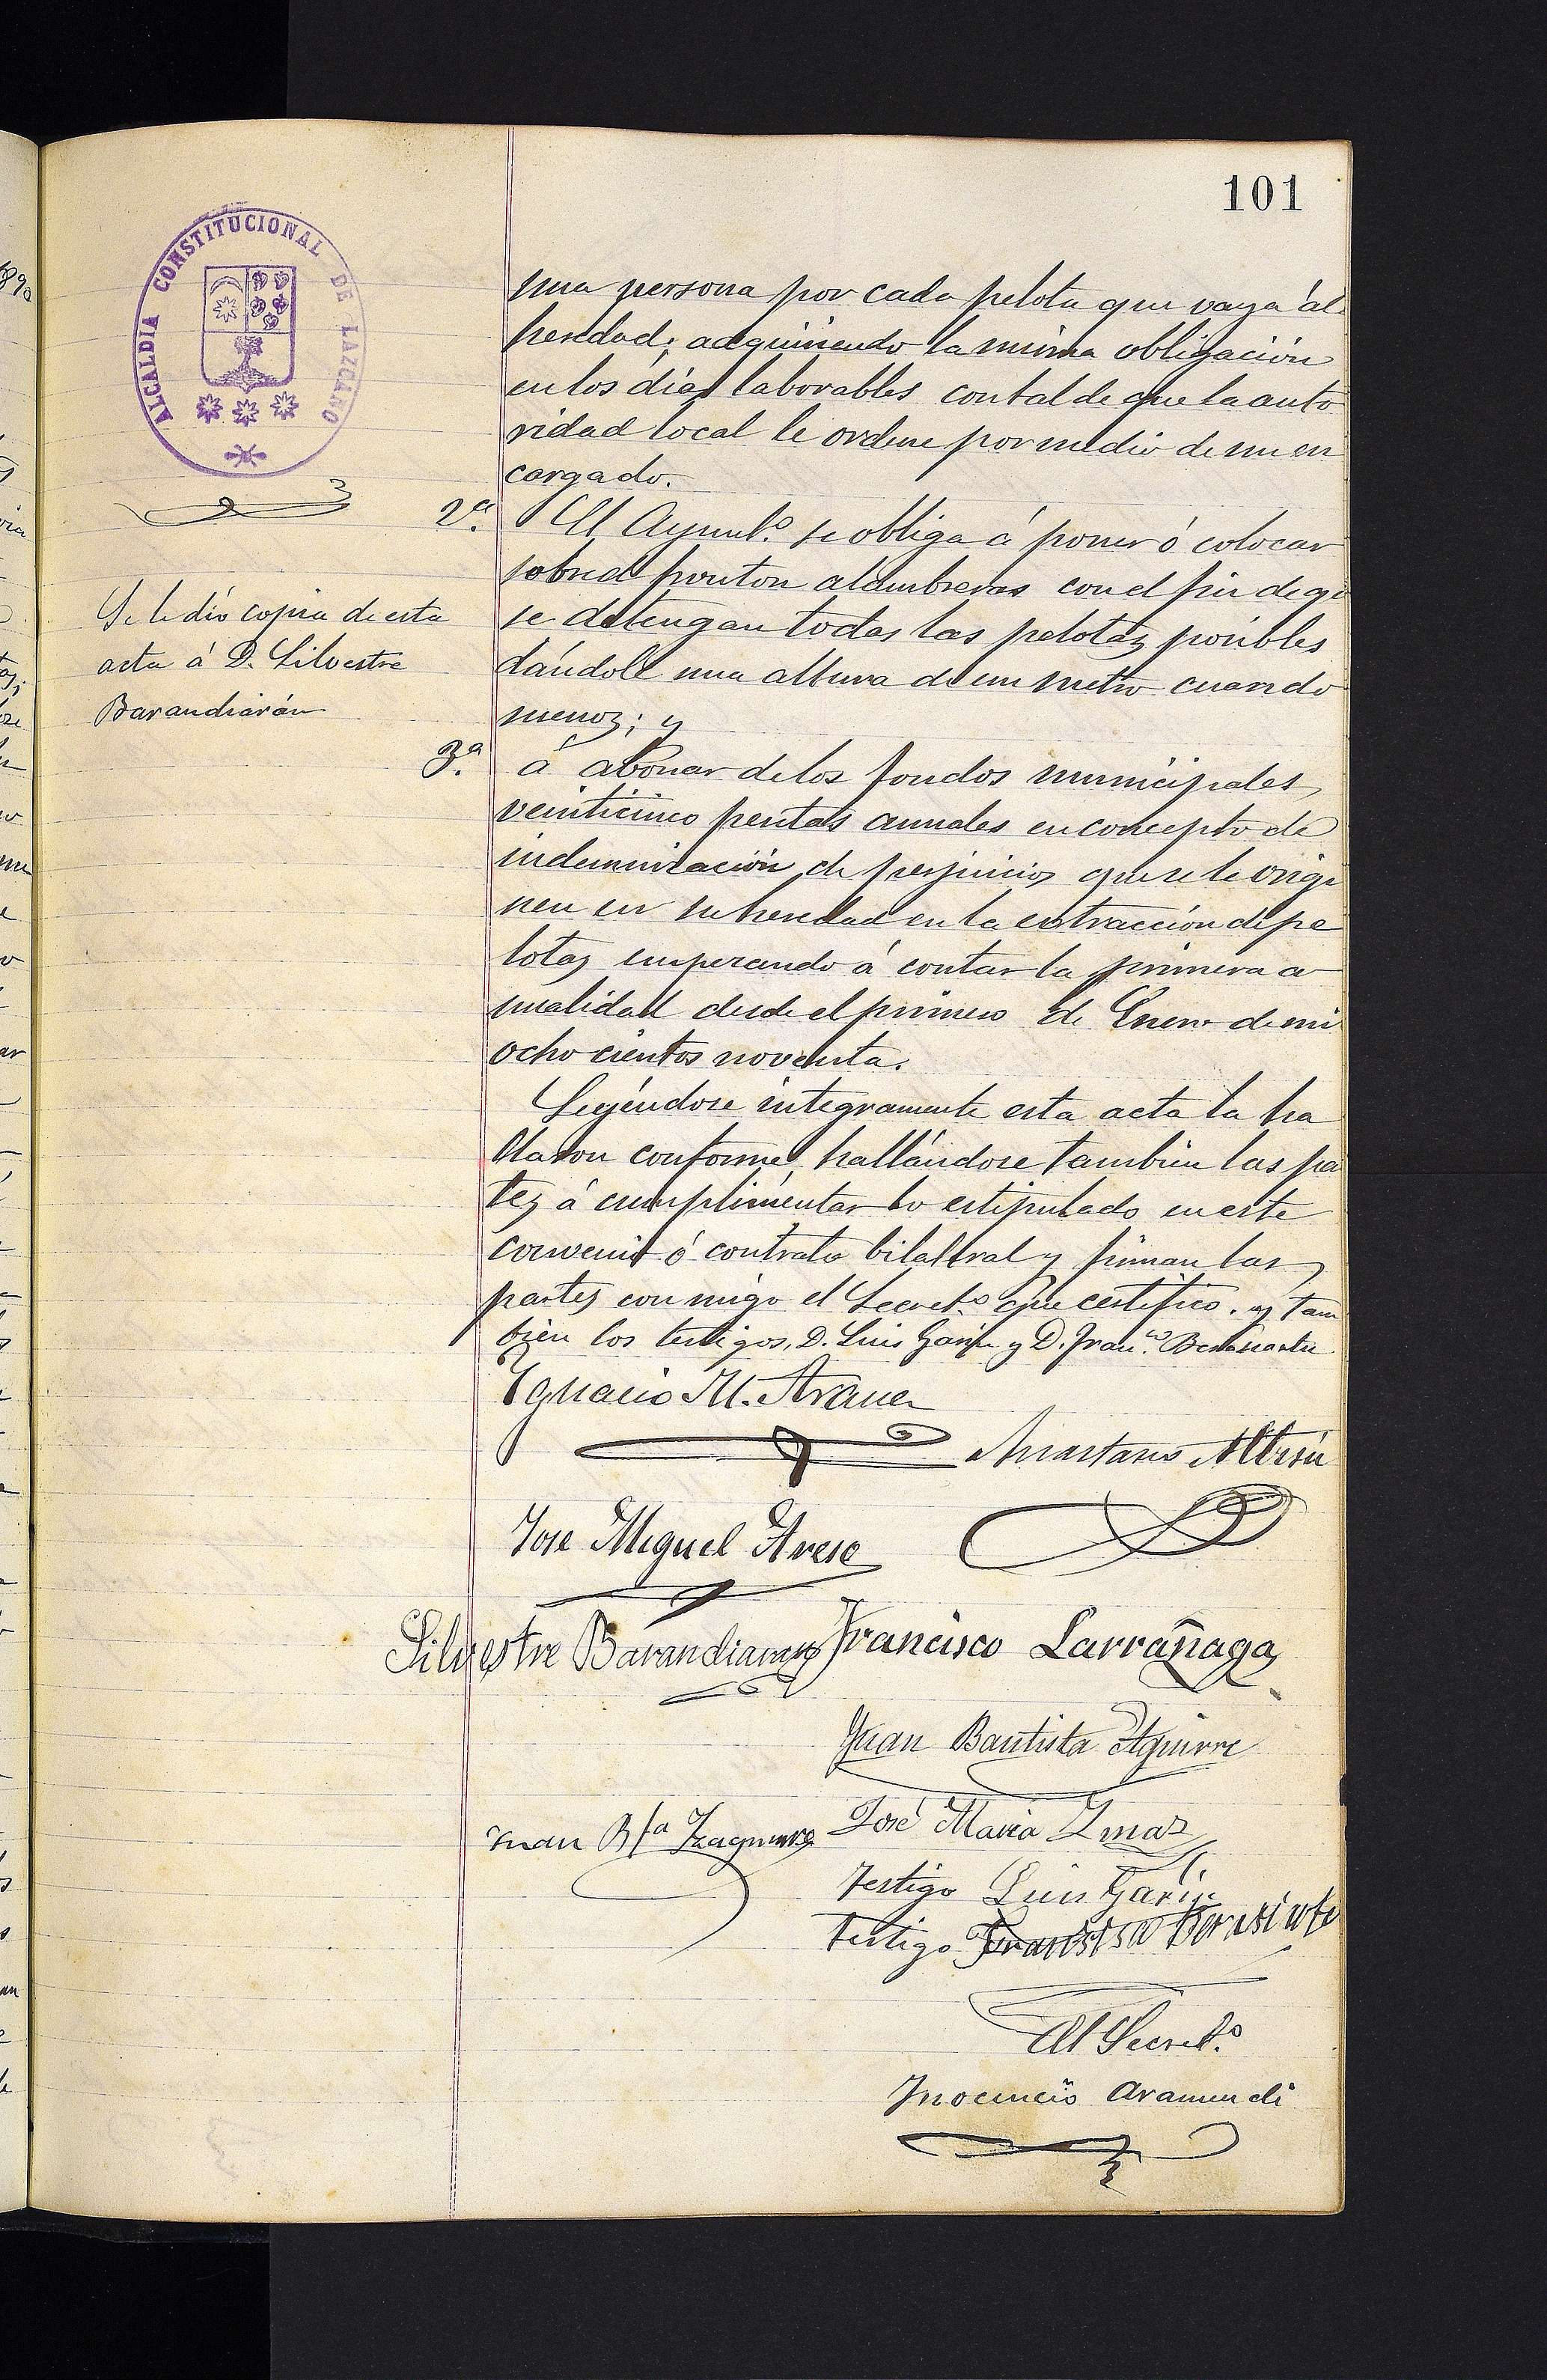 101
ALCALDIA CONSTITUCIONAL DE LAZCANO
una persona por cada pelota que vaya á la
heredad; adquiriendo la misma obligación
en los días laborables con tal de que la auto
ridad local le ordene por medio de un en
cargado.
2ª. El Ayunt.º se obliga á poner ó colocar
sobre el ponton alambreras con el fin de qe
se detengan todas las pelotas posibles
dándole una altura de un metro cuando
menos; y
Se le dió copia de esta
acta á D. Silvestre
Barandiarán
3ª. á abonar de los fondos municipales
veinticinco pesetas anuales en concepto de
indemnización de perjuicios que se le origi
nen en su heredad en la extracción de pe
lotas empezando á contar la primera a
nualidad desde el primero de Enero de mil
ocho cientos noventa.
Leyéndose integramente esta acta la ha
llaron conforme, hallándose tambien las pa
tes á cumplimentar lo estipulado en este
convenio ó contrato bilateral y firman las
partes con migo el Secret.º que certifico. y tam
bien los testigos, D. Luis Garin y D. Fran.co Berasiartu
Ignacio M. Arana
Anastasio Albisu
Jose Miguel Arese
Silvestre Barandiaran Francisco Larrañaga
Juan Bautista Aguirre
Juan Bta Izaguirre José Maria Imaz
Testigo Luis Garin
Testigo Francisco
El Secret.º
Inocencio Aramendi